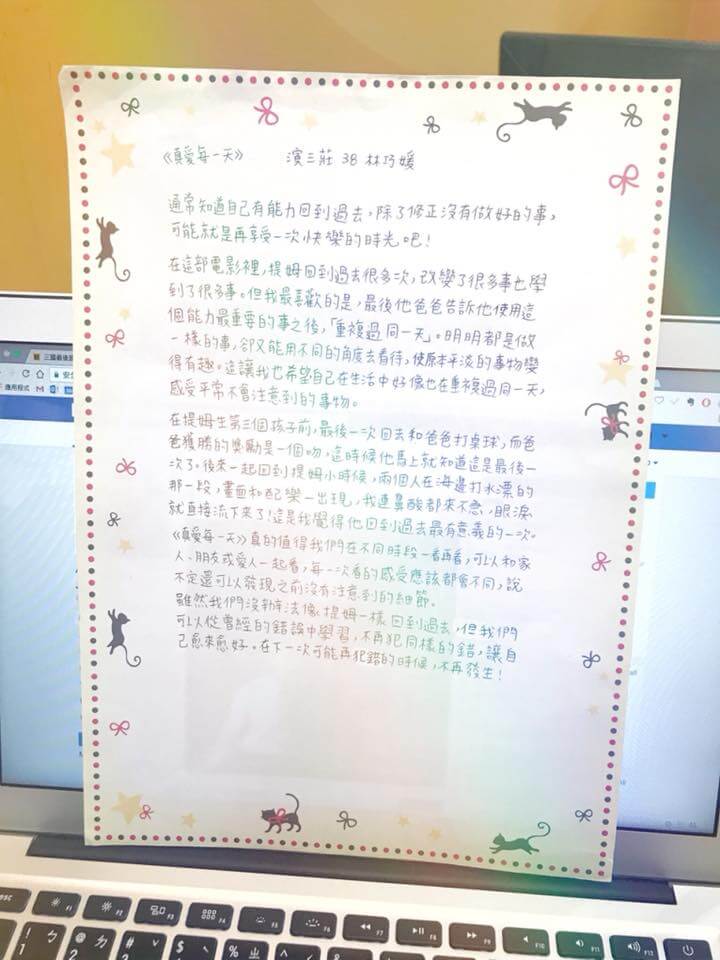 《真愛每一天》 演三莊 38 林巧媛
通常知道自己有能力回到過去，除了修正沒有做好的事，
可能就是再享受一次快樂的時光吧！
在這部電影裡，提姆回到過去很多次，改變了很多事也學
到了很多事。但我最喜歡的是，最後他爸爸告訴他使用這
個能力最重要的事之後，「重複過同一天」。明明都是做
一樣的事，卻又能用不同的角度去看待，使原本平淡的事物變
得有趣。這讓我也希望自己在生活中好像也在重複過同一天，
感受平常不會注意到的事物。
在提姆生第三個孩子前，最後一次回去和爸爸打桌球，而爸
爸獲勝的獎勵是一個吻，這時候他馬上就知道這是最後一
次了。後來一起回到提姆小時候，兩個人在海邊打水漂的
那一段，畫面和配樂一出現，我連鼻酸都來不急，眼淚
就直接流下來了！這是我覺得他回到過去最有意義的一次。
《真愛每一天》真的值得我們在不同時段一看再看，可以和家
人、朋友或愛人一起看，每一次看的感受應該都會不同，說
不定還可以發現之前沒有注意到的細節。
雖然我們沒辦法像提姆一樣回到過去，但我們
可以從曾經的錯誤中學習，不再犯同樣的錯，讓自
己愈來愈好。在下一次可能再犯錯的時候，不再發生！
三國最後
應用程式
esc
F1
F2
F3
F4
F5
F6
F7
F8
F9
F10
F11
F12
！
1
ㄅ
@
2
ㄉ
#
3
ˇ
$
%